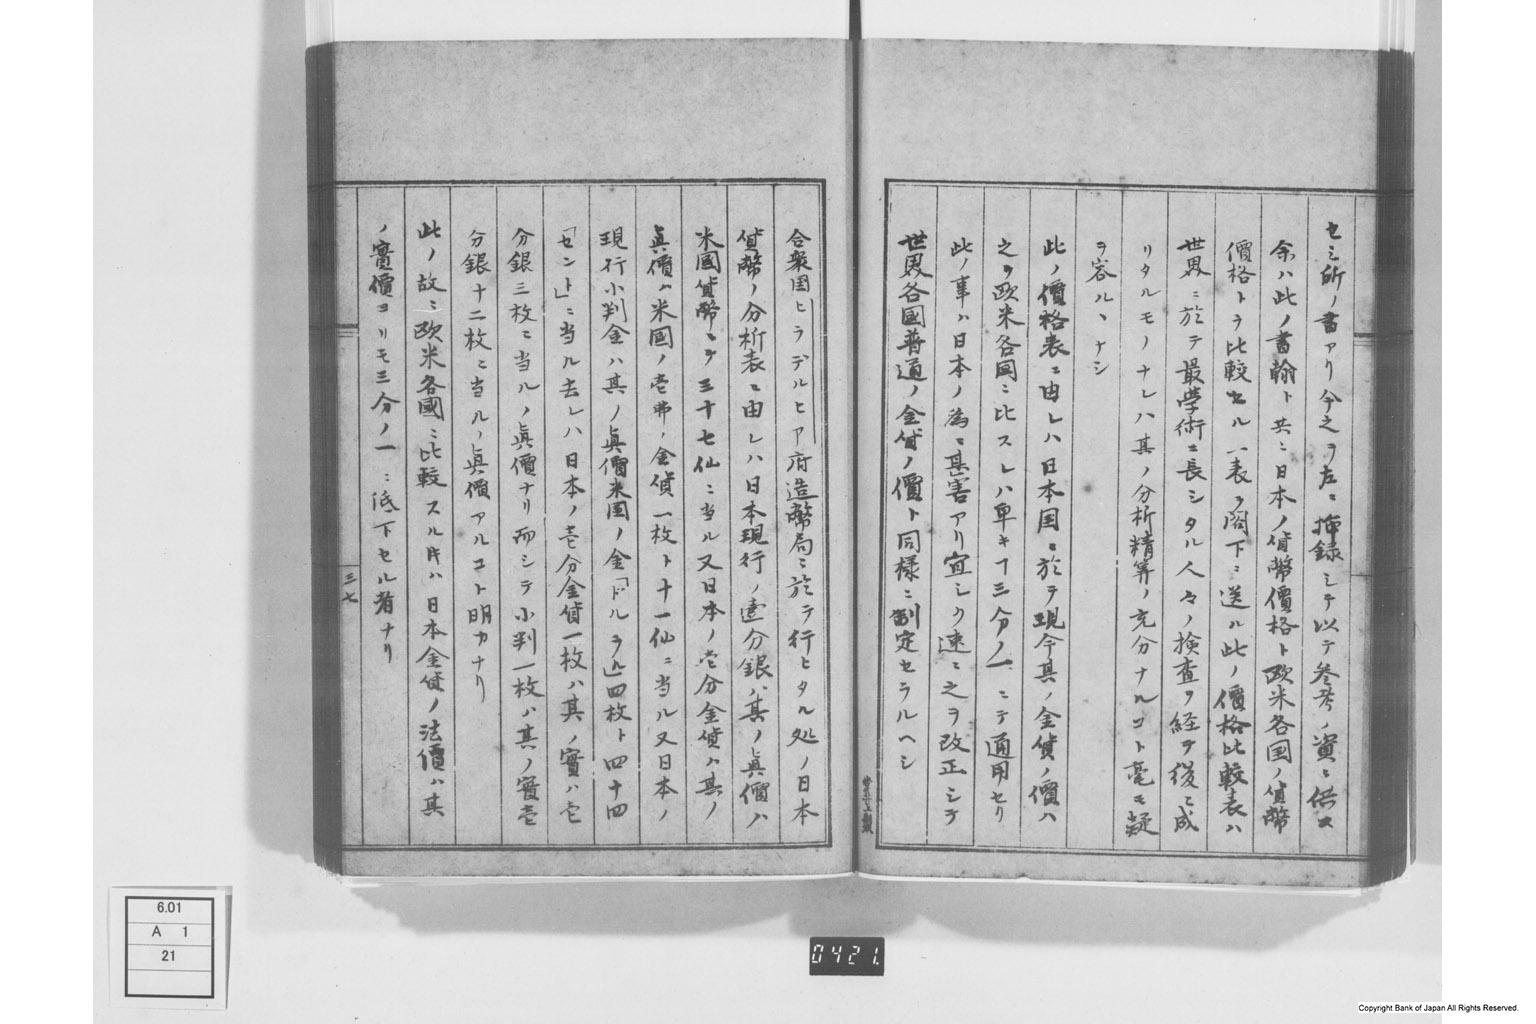 セシ所ノ書アリ今之ヲ左ニ挿録シテ以テ參考ノ資ニ供ス
余ハ此ノ書翰ト共ニ日本ノ貨幣價格ト欧米各国ノ貨幣
價格トヲ比較セル一表ヲ閣下ニ送ル此ノ價格比較表ハ
世界ニ於テ最学術ニ長シタル人々ノ検査ヲ経テ後ニ成
リタルモノナレハ其ノ分析精算ノ充分ナルコト毫モ疑
ヲ容ルヽナシ
此ノ價格表ニ由レハ日本国ニ於テ現今其ノ金貨ノ價ハ
之ヲ欧米各国ニ比スレハ卑キヿ三分ノ一ニテ通用セリ
此ノ事ハ日本ノ為ニ甚害アリ宜シク速ニ之ヲ改正シテ
世界各國普通ノ金貨ノ價ト同様ニ制定セラルヘシ
合衆国ヒラデルヒア府造幣局ニ於テ行ヒタル処ノ日本
貨幣ノ分析表ニ由レハ日本現行ノ壹分銀ハ其ノ眞價ハ
米國貨幣ニテ三十七仙ニ当ル又日本ノ壱分金貨ハ其ノ
眞價ハ米国ノ壱弗ノ金貨一枚ト十一仙ニ当ル又日本ノ
現行小判金ハ其ノ眞價米国ノ金「ドルラル」四枚ト四十四
「セント」ニ当ル去レハ日本ノ壱分金貨一枚ハ其ノ實ハ壱
分銀三枚ニ当ルノ眞價ナリ而シテ小判一枚ハ其ノ實壱
分銀十二枚ニ当ルノ眞價アルコト明カナリ
此ノ故ニ欧米各國ニ比較スル片ハ日本金貨ノ法價ハ其
ノ實價ヨリモ三分ノ一ニ低下セル者ナリ
三七
6.01
A 1
21
0421.
Copyright Bank of Japan All Rights Reserved.